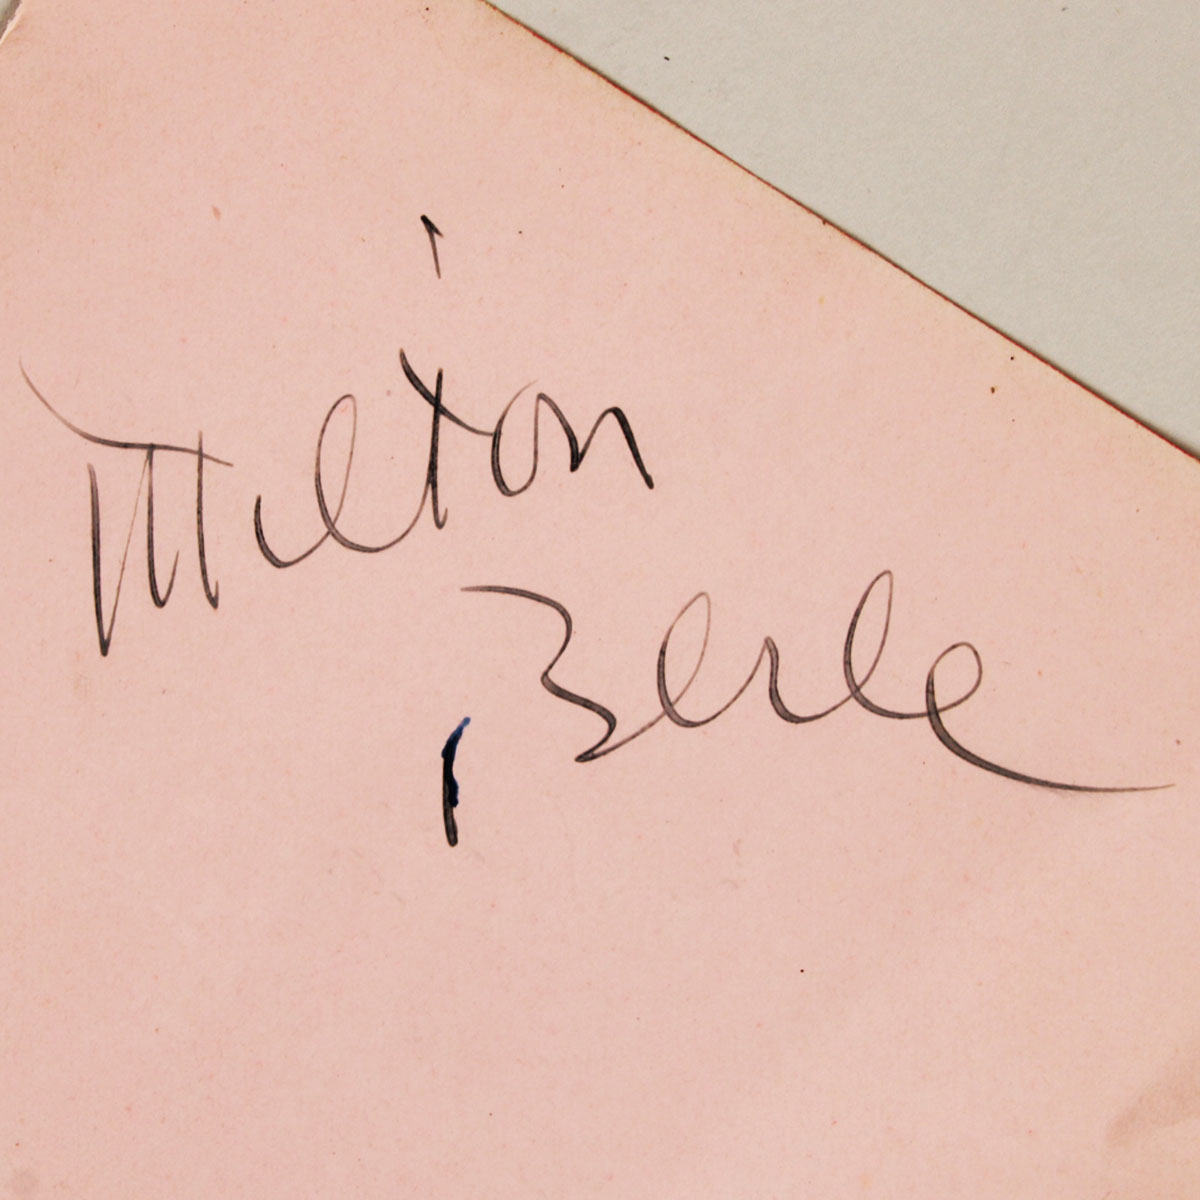 Milton
Berle